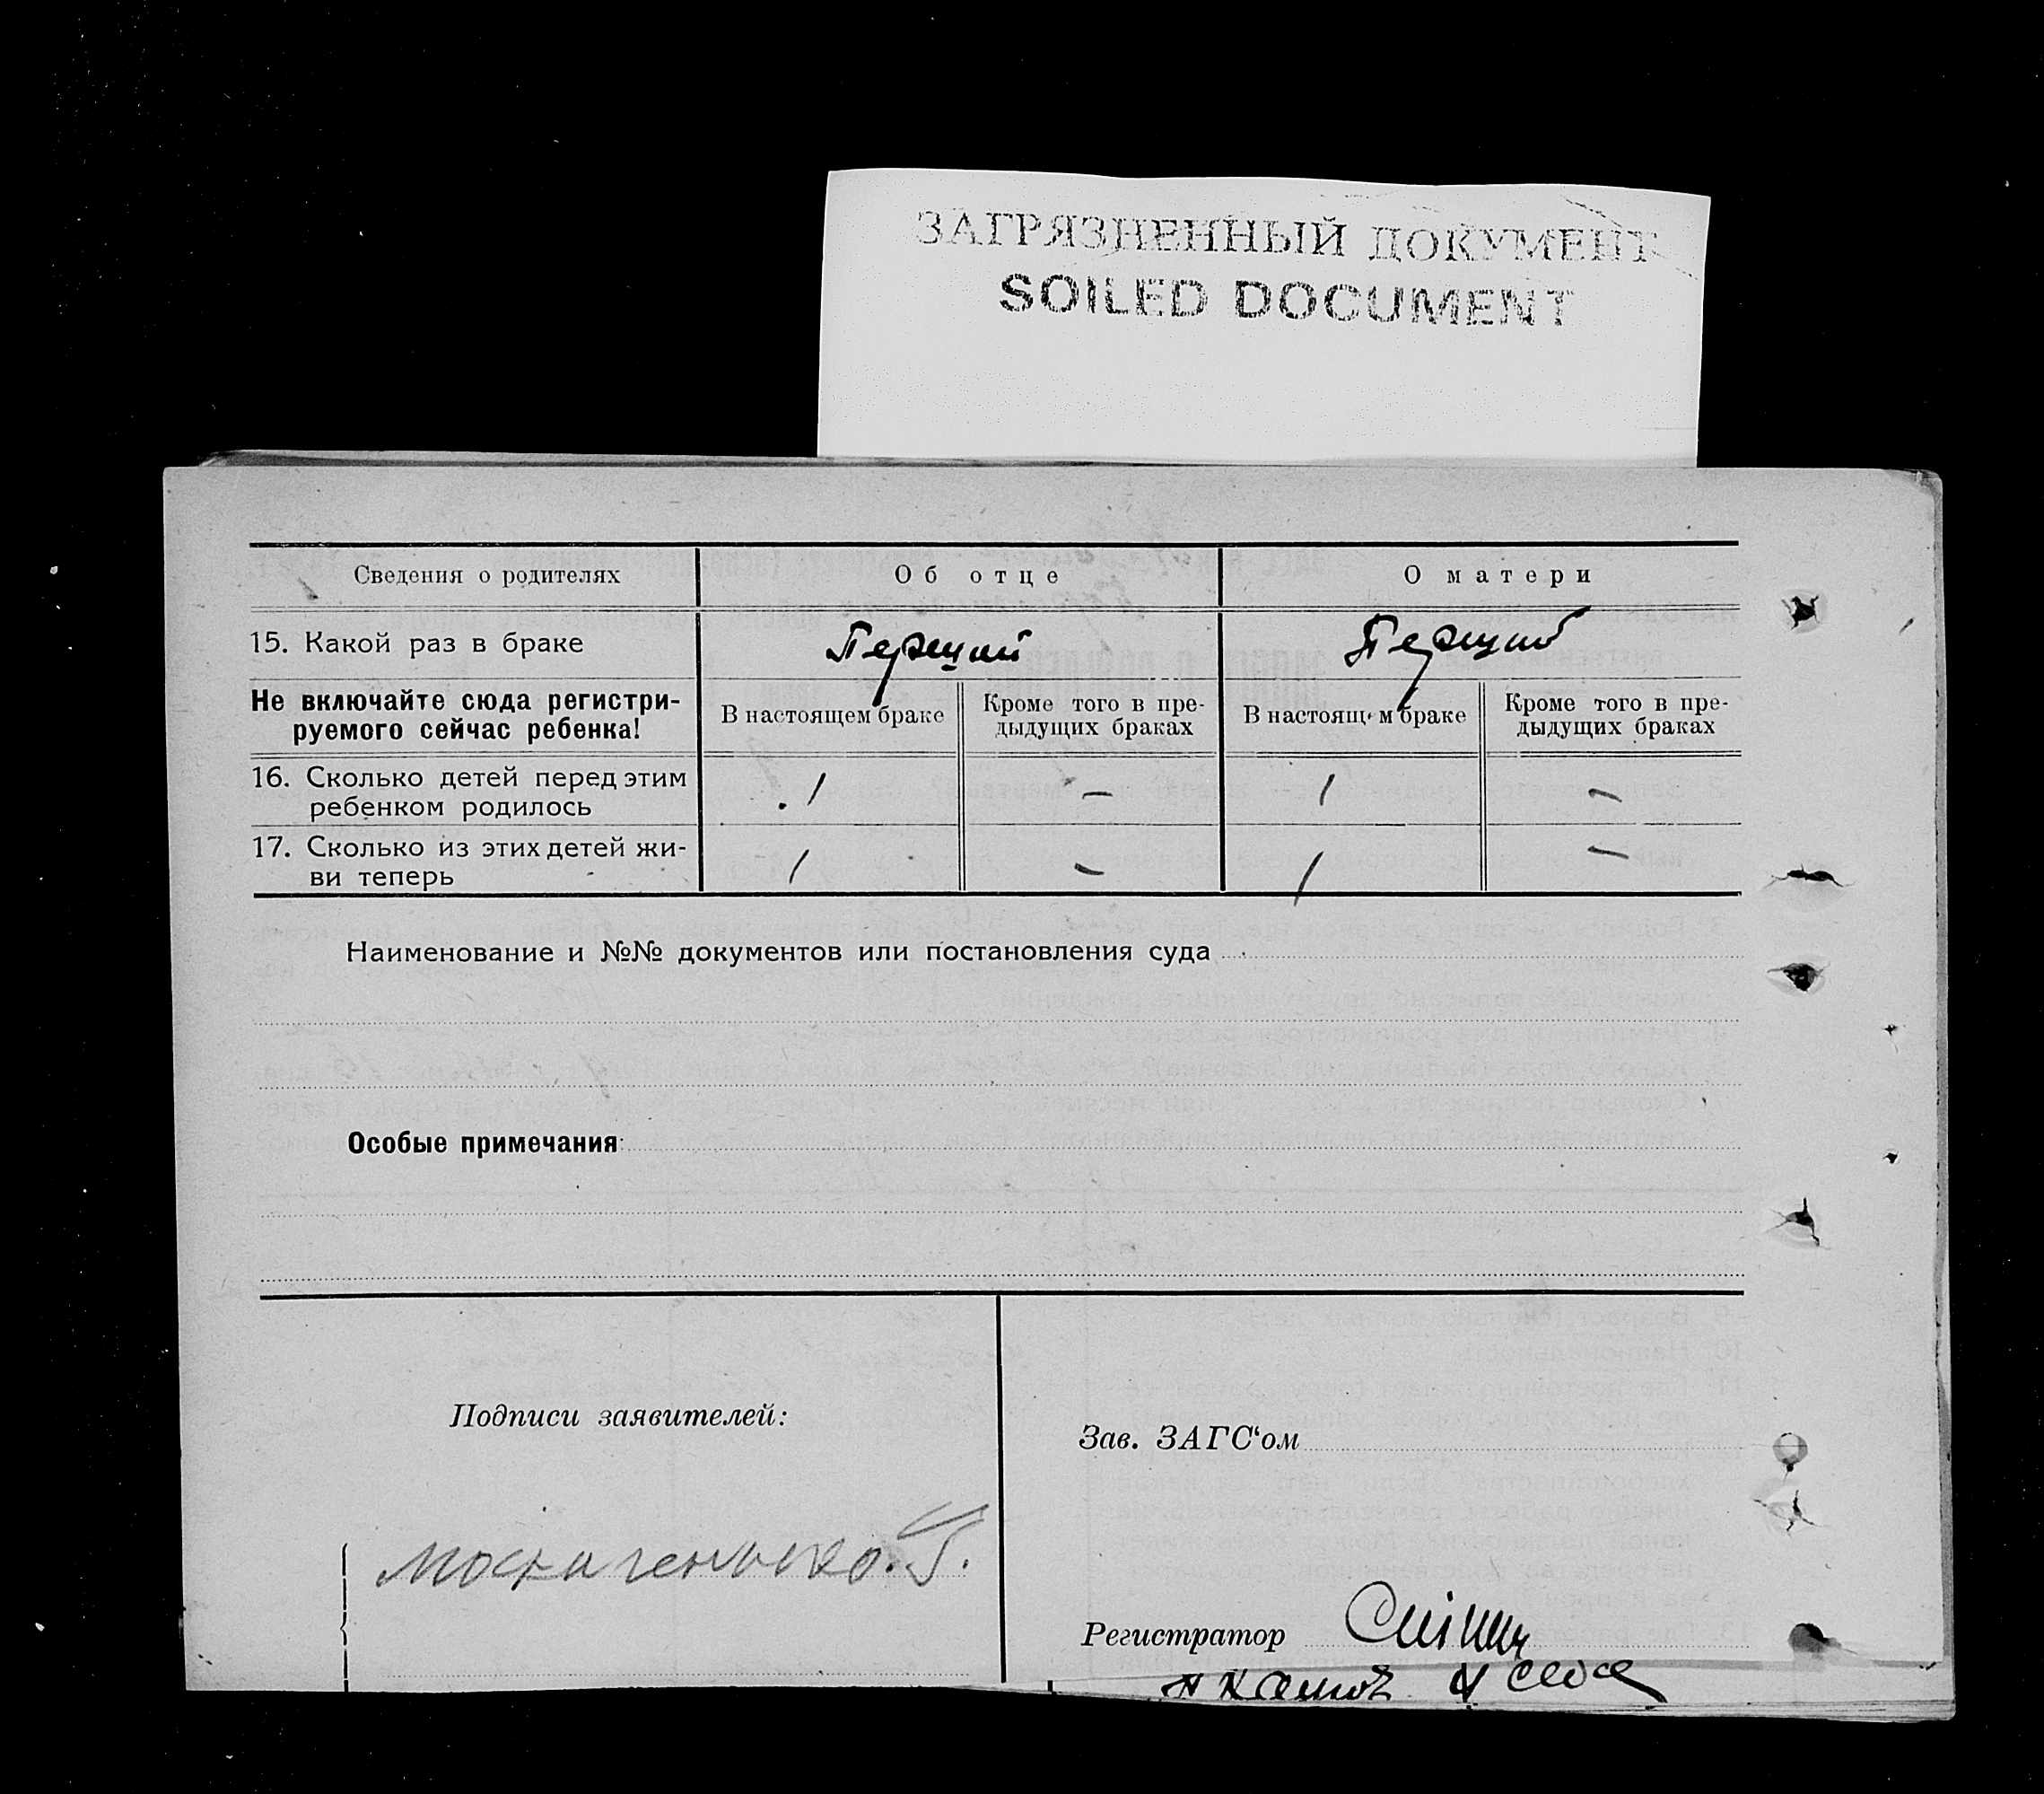 ЗАГРЯЗНЕННЫЙ ДОКУМЕНТ
SOILED DOCUMENT
Сведения о родителях
Об отце
О матери
15. Какой раз в браке
Перший
Перший
Не включайте сюда регистри-
руемого сейчас ребенка!
В настоящем браке
Кроме того в пре-
дыдущих браках
В настоящем браке
Кроме того в пре-
дыдущих браках
16. Сколько детей перед этим
ребенком родилось
1
–
1
–
17. Сколько из этих детей жи-
ви теперь
1
–
1
–
Наименование и №№ документов или постановления суда
Особые примечания
Подписи заявителей:
Зав. ЗАГС‘ом
Регистратор